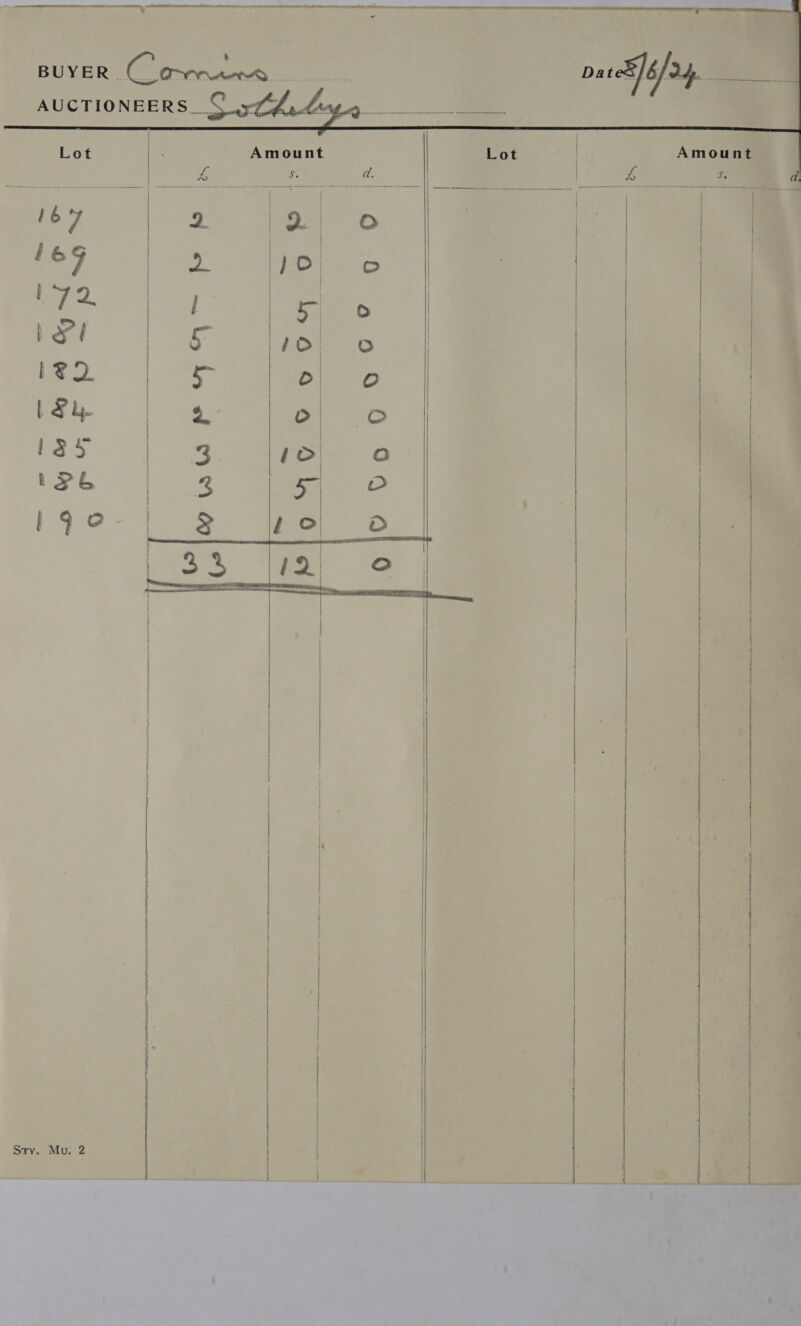 BUYER Date
AUCTIONEERS Sothebys
Lot Amount Lot Amount
£ s. d. £ s. d.
167 2 2 0
169 2 10 0
172 1 5 0
181 5 10 0
182 5 0 0
184 2 0 0
185 3 10 0
186 3 5 0
190 - 8 10 0
33 12 0
Sty. Mu. 2